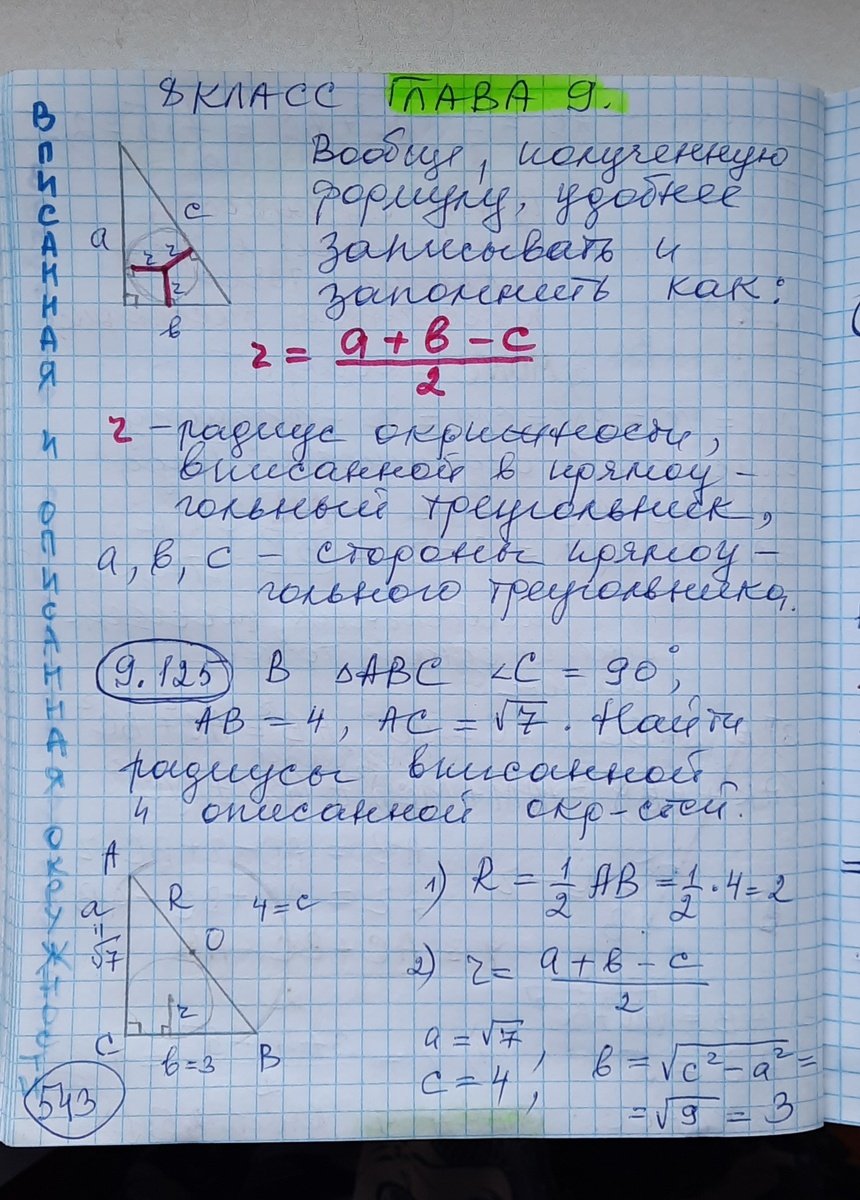 8 КЛАСС ГЛАВА 9.
ВПИСАННАЯ И ОПИСАННАЯ ОКРУЖНОСТЬ
a
c
r r
r
в
Вообще, полученную
формулу, удобнее
записывать и
запомнить как:
r = (a + в - c)/2
r - радиус окружности,
вписанной в прямоу-
гольный треугольник,
a, в, c - стороны прямоу-
гольного треугольника.
9.125 В △ABC ∠C = 90°,
AB = 4, AC = √7. Найти
радиусы вписанной
и описанной окр-стей.
A
a = √7
R
4 = c
O
r
C
в = 3
B
1) R = 1/2 AB = 1/2 · 4 = 2
2) r = (a + в - c)/2
a = √7,
c = 4,
в = √(c² - a²) =
= √9 = 3
543